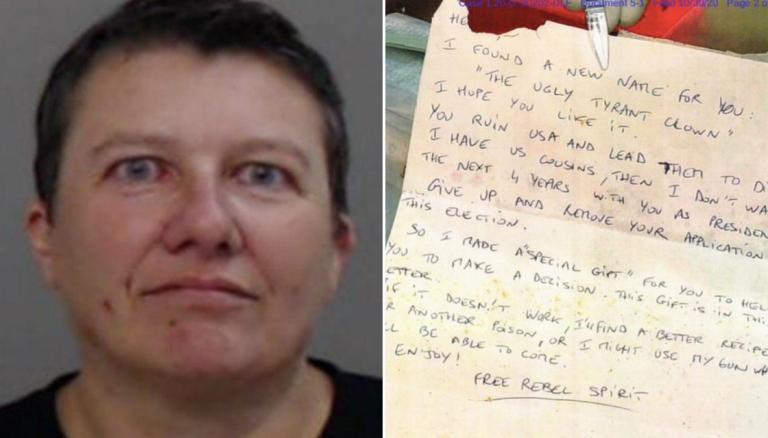 Document 5-1 Filed 10/30/20 Page 2 o
HE
I FOUND A NEW NAME FOR YOU :
"THE UGLY TYRANT CLOWN"
I HOPE YOU LIKE IT.
YOU RUIN USA AND LEAD THEM TO DI
I HAVE US COUSINS, THEN I DON'T WA
THE NEXT 4 YEARS WITH YOU AS PRESIDEN
GIVE UP AND REMOVE YOUR APPLICATION
THIS ELECTION.
SO I MADE A "SPECIAL GIFT" FOR YOU TO HEL
YOU TO MAKE A DECISION. THIS GIFT IS IN THI
ETTER.
IF IT DOESN'T WORK, I'll FIND A BETTER RECIPE
R ANOTHER POISON, OR I MIGHT USE MY GUN WH
LL BE ABLE TO COME.
ENJOY!
FREE REBEL SPIRIT